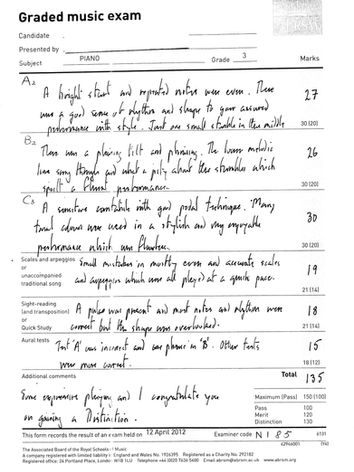 Graded music exam
Candidate
Presented by
Subject PIANO Grade 3 Marks
A2
A bright start and repeated notes were even. There 27
was a good sense of rhythm and shape to your assured
performance with style. Just one small stumble in the middle 30 (20)
B2
There was a pleasing lilt and phrasing. The lower melodic 26
line sang through and what a pity about the stumbles which
spoilt a fluent performance. 30 (20)
C3
A sensitive with good pedal technique. Many 30
tonal colours were used in a stylish and very enjoyable
performance which was flawless. 30 (20)
Scales and arpeggios
or
unaccompanied
traditional song
Small mistakes in mostly even and accurate scales 19
and arpeggios which were all played at a quick pace. 21 (14)
Sight-reading
(and transposition)
or
Quick Study
A pulse was present and most notes and rhythm were 18
correct but the shape was overlooked. 21 (14)
Aural tests
Test 'A' was incorrect and one phrase in 'B'. Other tests 15
were more correct. 18 (12)
Additional comments Total 135
Some expressive playing and I congratulate you
on gaining a Distinction.
Maximum (Pass) 150 (100)
Pass 100
Merit 120
Distinction 130
This form records the result of an exam held on 12 April 2012 Examiner code N185
The Associated Board of the Royal Schools of Music
A company registered with limited liability England and Wales No. 1926395 Registered as a Charity No. 292182
Registered office: 24 Portland Place, London W1B 1LU Telephone +44 (0)20 7636 5400 Email abrsm@abrsm.ac.uk www.abrsm.org